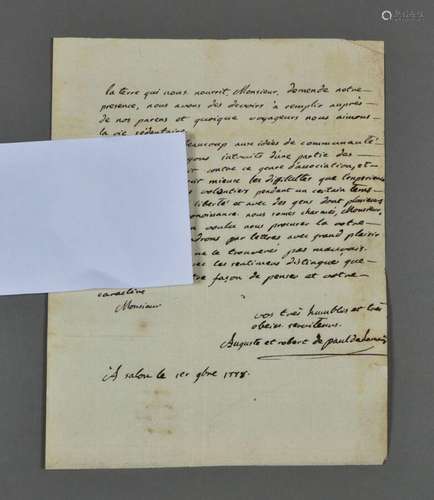 la terre qui nous nourrit, Monsieur, demende notre
presence, nous avons des devoirs à remplir auprès
de nos parens et quoique voyageurs nous aimons
la vie sédentaire
beaucoup aux idées de communauté
intruits d'une partie des
contre ce genre d'association, et
mieux les difficultés que l'experience
volontier pendant un certain tems
liberté et avec des gens dont plusieurs
nous somes charmés, Monsieur,
voulu nous procurer la votre
par lettres avec grand plaisir
ne le trouverés pas mauvais.
les sentimens distingués que
façon de penser et votre
caractère
Monsieur
vos très humbles et très
obeiss serviteurs.
Auguste et robert de paul de
A salon le 1er 9bre 1778.